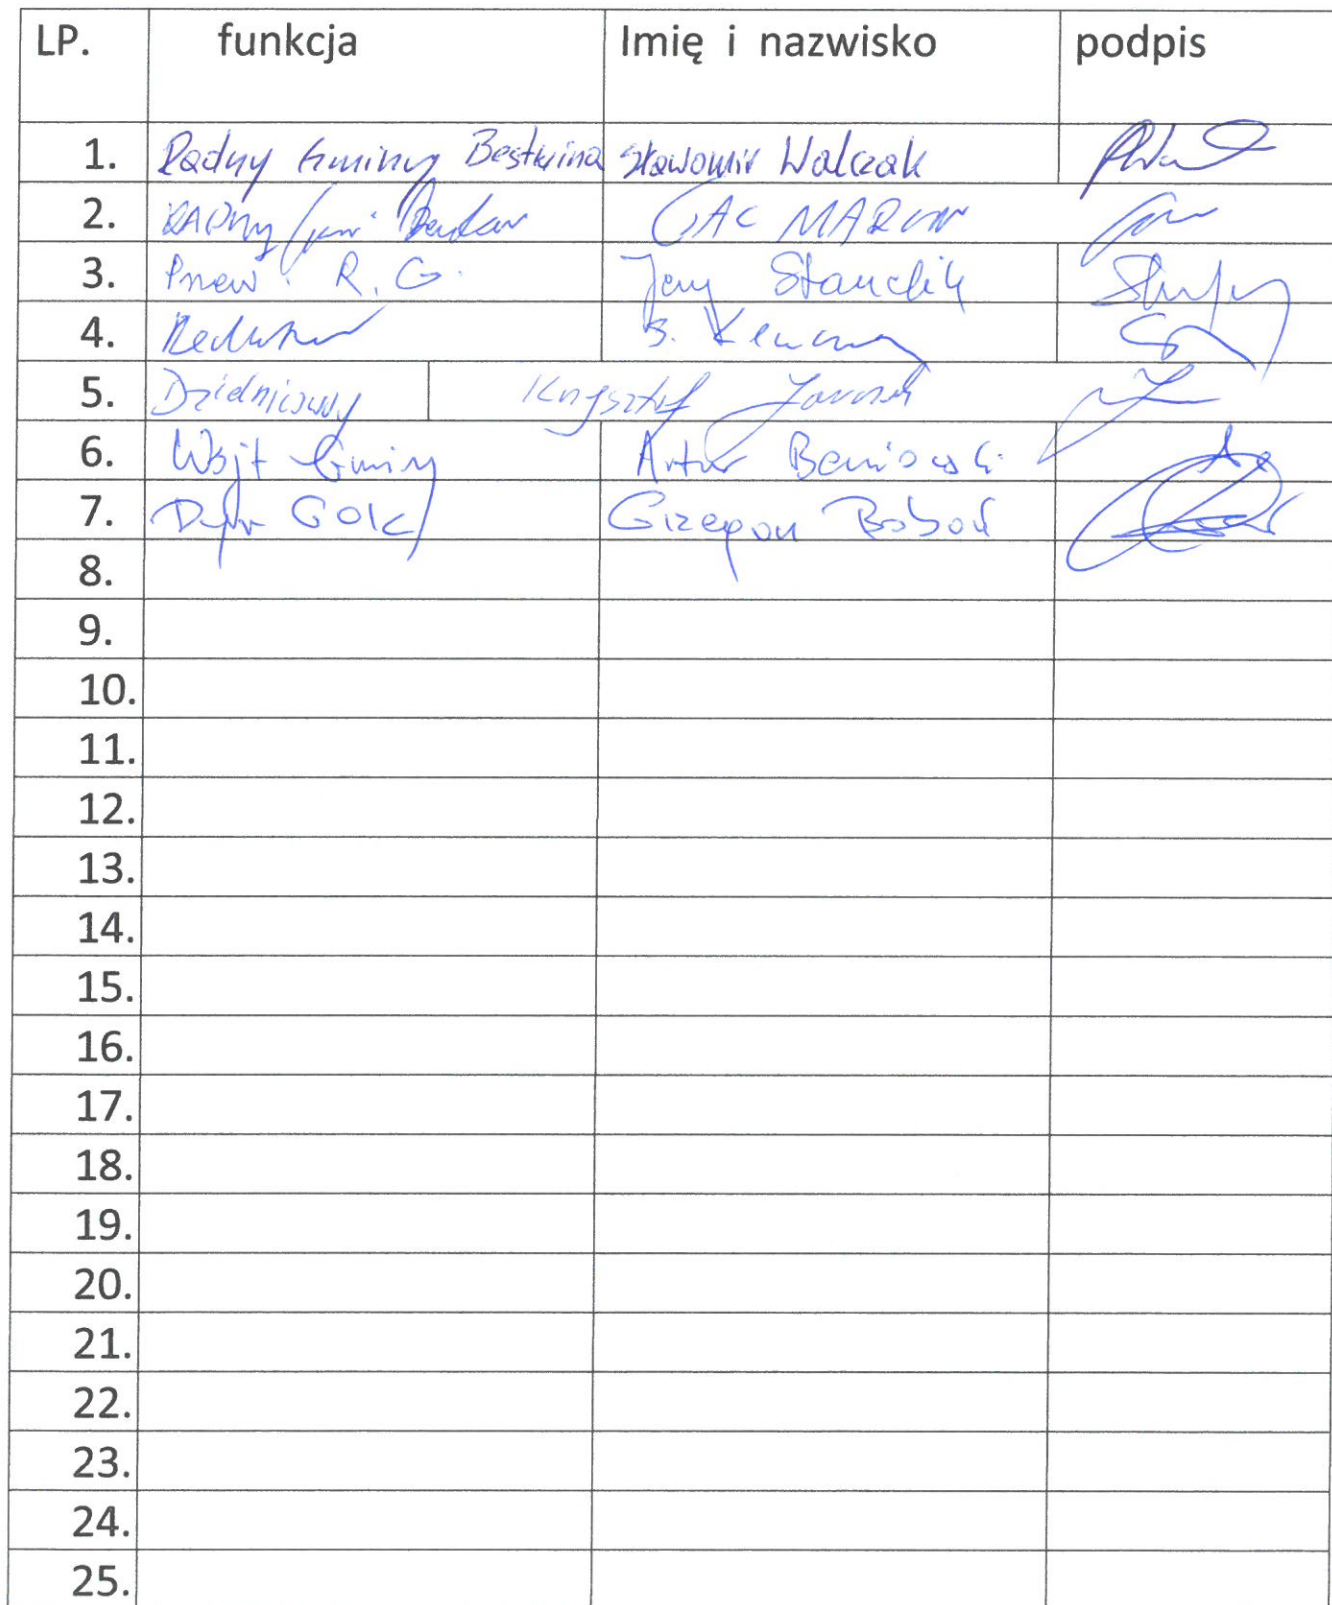 LP. funkcja Imię i nazwisko podpis
1. Radny Gminy Bestwina Sławomir Walczak
2. RADNY GAC MARCIN
3. R. G. Jerzy Stanclik
4. Redaktor
5. Dzielnicowy Krzysztof
6. Wójt Gminy Artur Beniowski
7. Dyr GOK Grzegorz Boboń
8.
9.
10.
11.
12.
13.
14.
15.
16.
17.
18.
19.
20.
21.
22.
23.
24.
25.